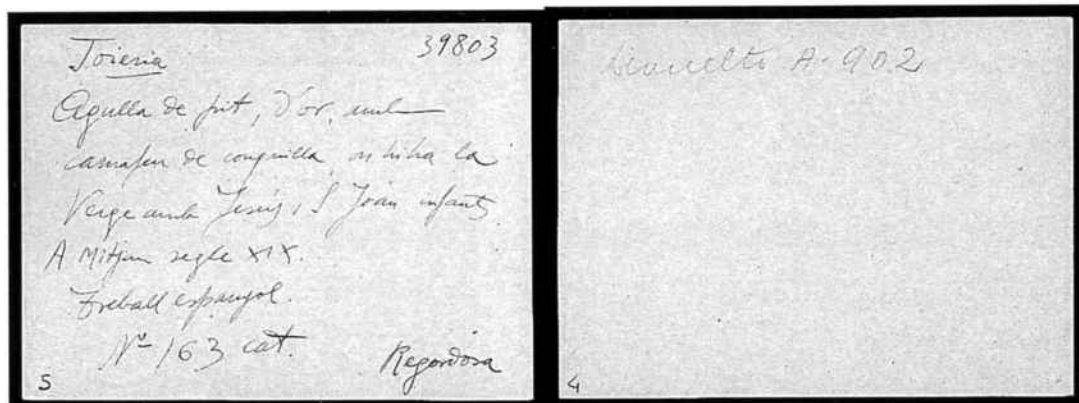 Joieria 39803
Agulla de pit, d'or, amb
camafeu de conquilla, on hi ha la
Verge amb Jesús i S Joan infants
A Mitjan segle XIX.
Treball espanyol.
Nº 163 cat.
Regordosa
5
A-902
4